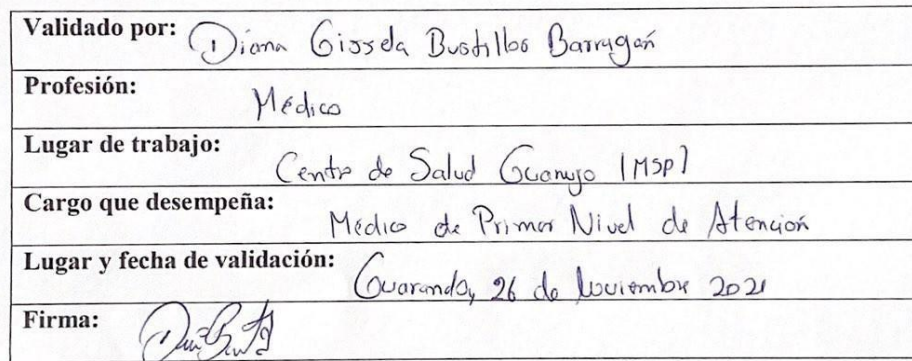 Validado por: Diana Gissela Bustillos Barragán
Profesión: Médico
Lugar de trabajo: Centro de Salud Guanujo (MSP)
Cargo que desempeña: Médico de Primer Nivel de Atención
Lugar y fecha de validación: Guaranda, 26 de Noviembre 2021
Firma: